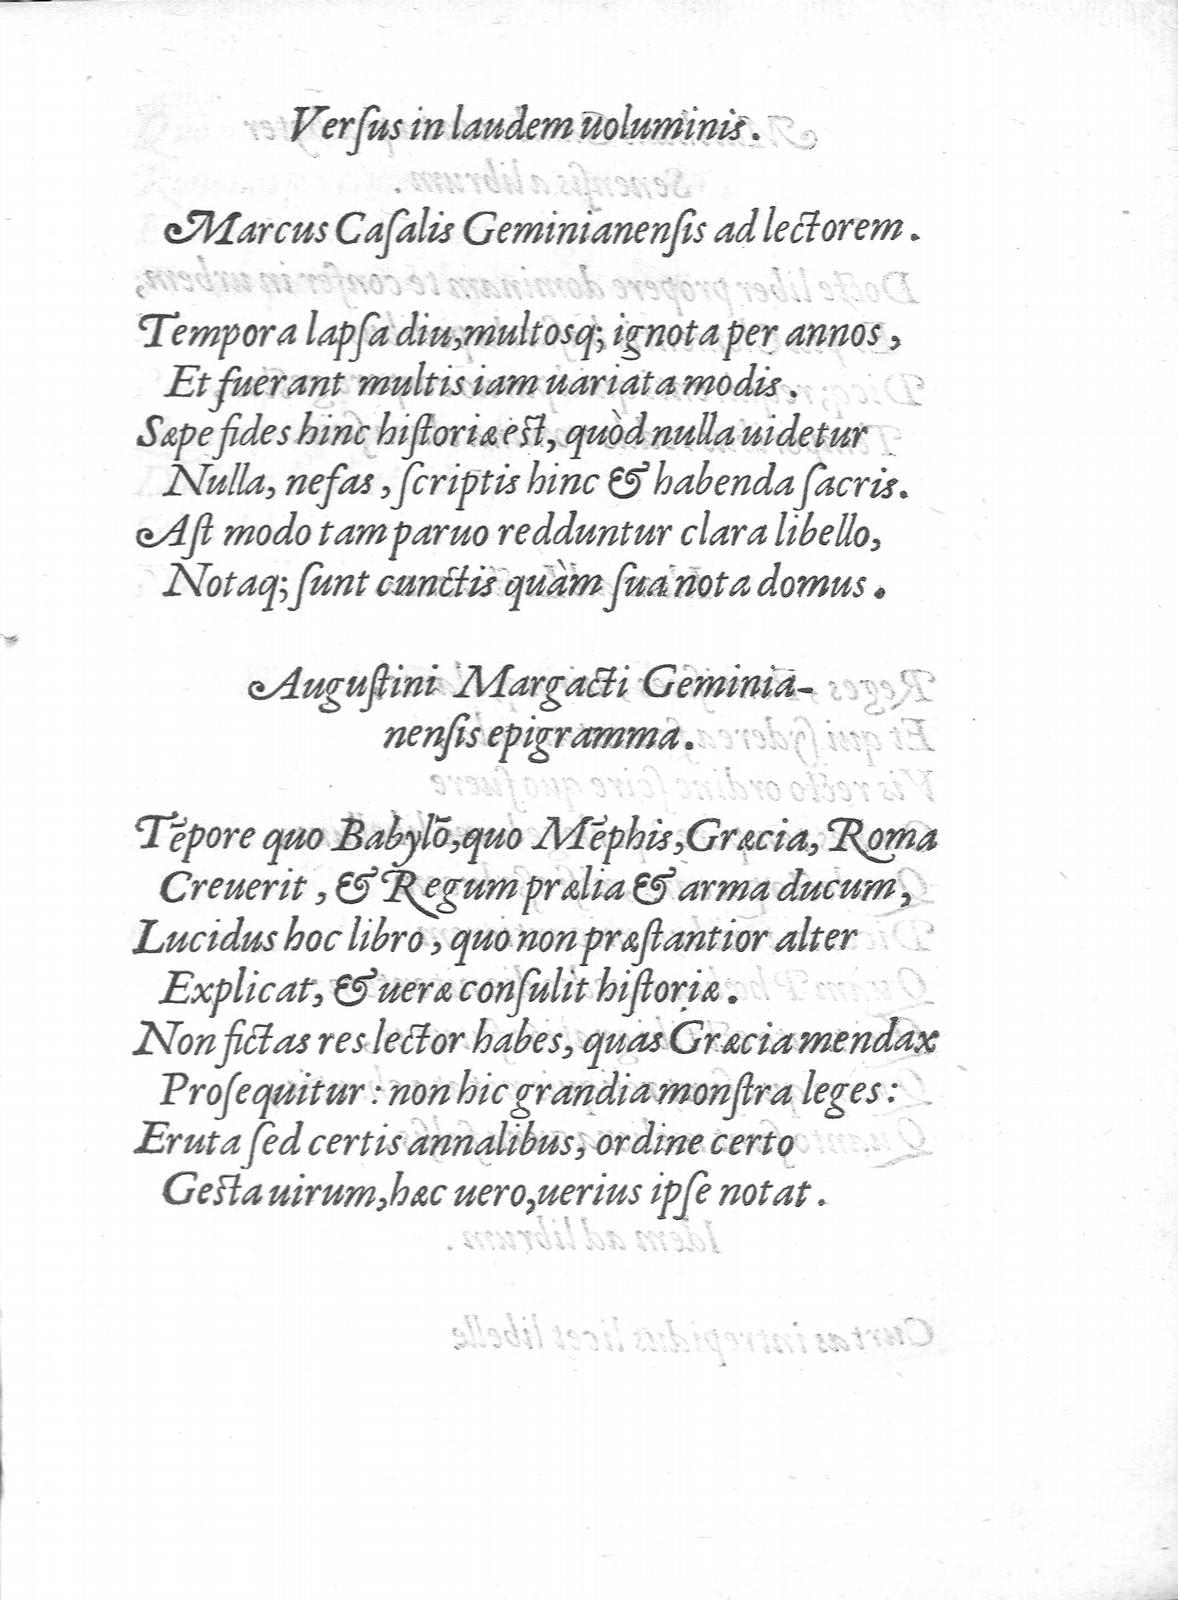 Verſus in laudem uoluminis.
Marcus Caſalis Geminianenſis ad lectorem.
Tempora lapſa diu, multosq; ignota per annos,
Et fuerant multis iam uariata modis.
Sæpe fides hinc hiſtoriæ est, quòd nulla uidetur
Nulla, nefas, ſcriptis hinc & habenda ſacris.
Aſt modo tam paruo redduntur clara libello,
Notaq; ſunt cunctis quàm ſua nota domus.
Auguſtini Margacti Geminia-
nenſis epigramma.
Tēpore quo Babylō, quo Mēphis, Græcia, Roma
Creuerit, & Regum prælia & arma ducum,
Lucidus hoc libro, quo non præſtantior alter
Explicat, & ueræ conſulit hiſtoriæ.
Non fictas res lector habes, quas Græcia mendax
Proſequitur: non hic grandia monſtra leges:
Eruta ſed certis annalibus, ordine certo
Gesta uirum, hæc uero, uerius ipſe notat.